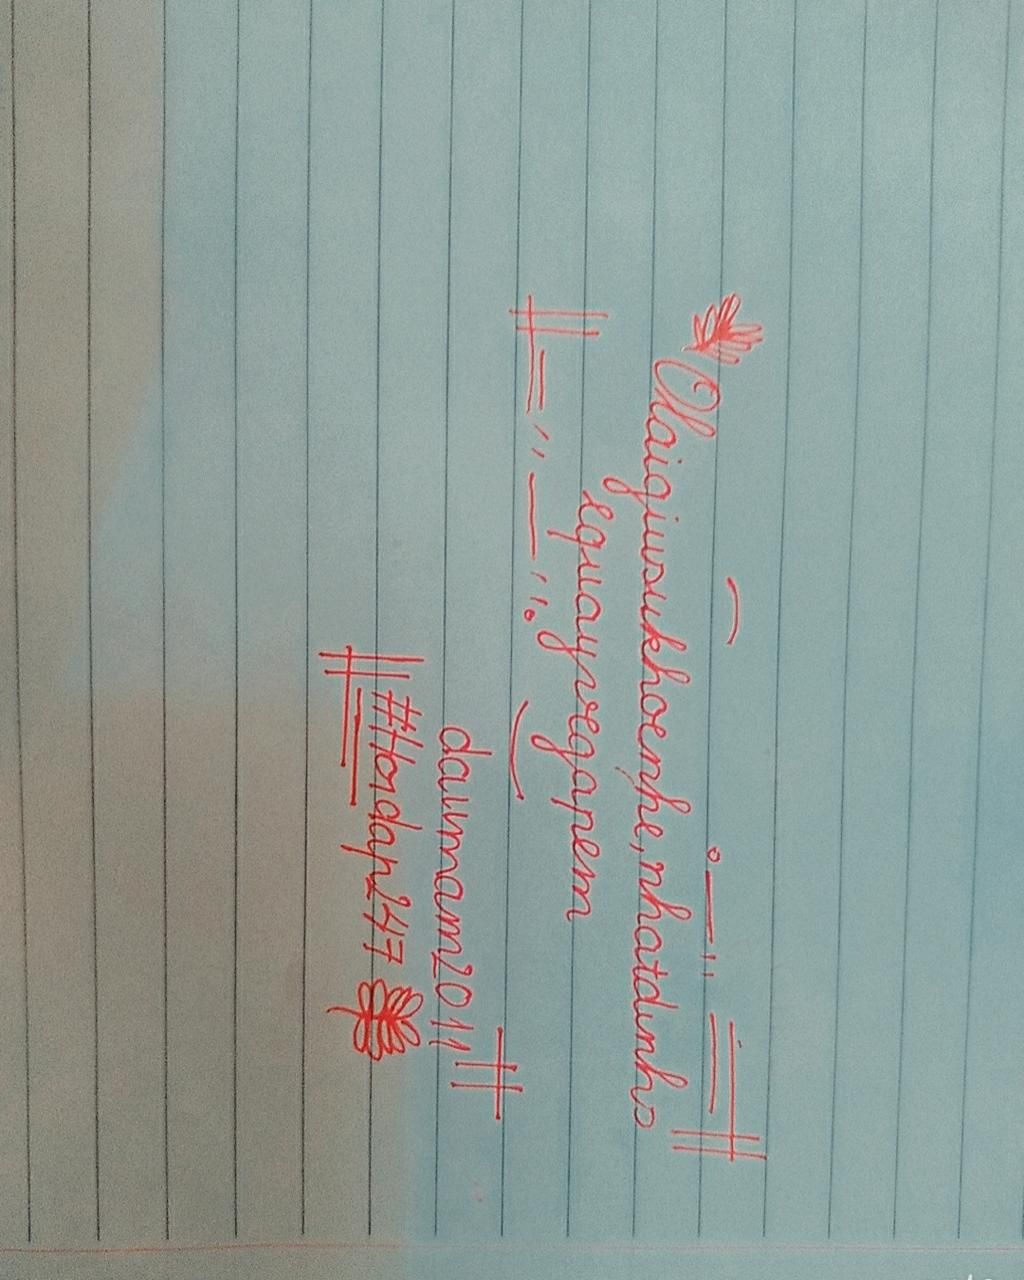 Olaigiusukhoenhe,nhatdinho
equayvegapem
daumam2011
#Honday247